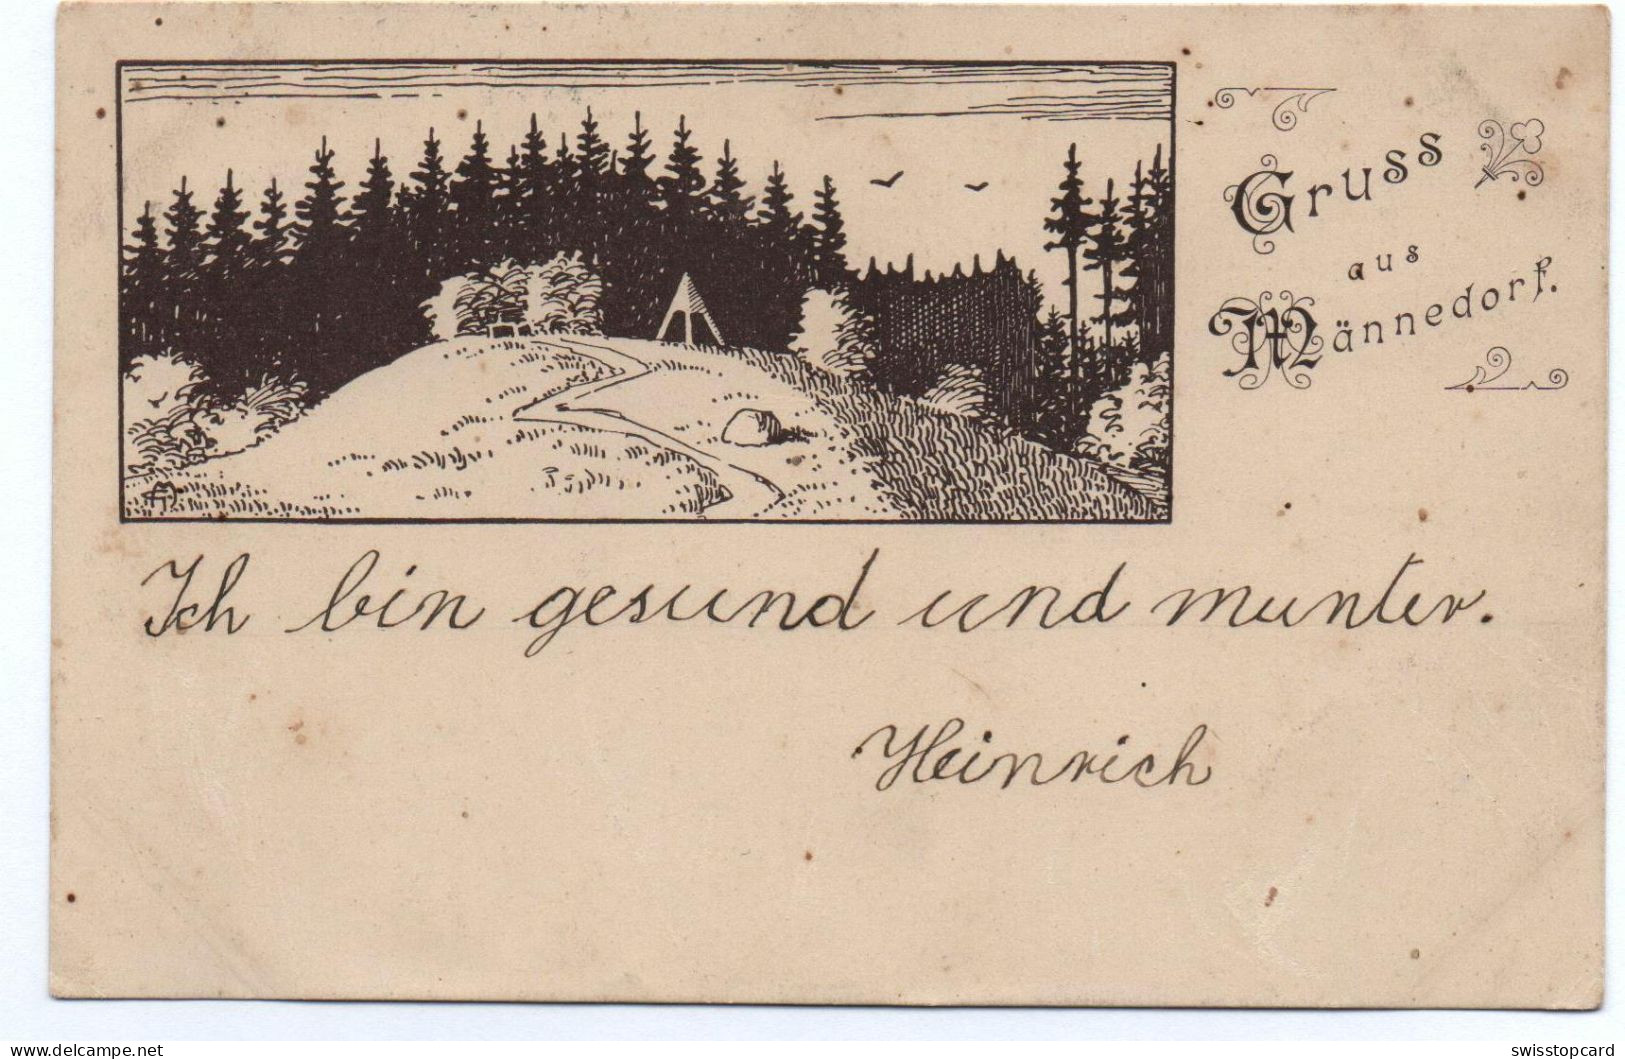 Gruss
aus
Männedorf.
Ich bin gesund und munter.
Heinrich
www.delcampe.net
swisstopcard